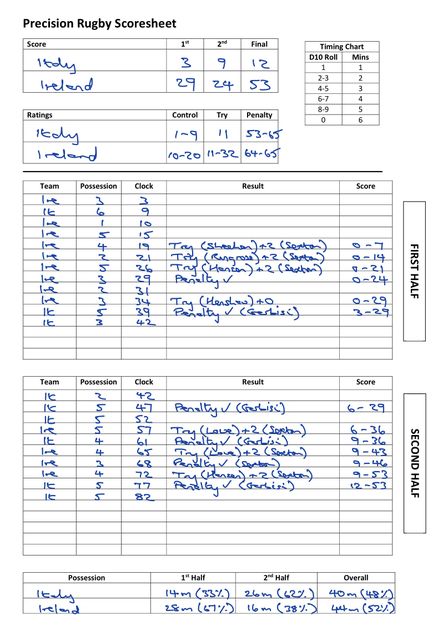 Precision Rugby Scoresheet
Score 1st 2nd Final
Italy 3 9 12
Ireland 29 24 53
Timing Chart
D10 Roll Mins
1 1
2-3 2
4-5 3
6-7 4
8-9 5
0 6
Ratings Control Try Penalty
Italy 1-9 11 53-65
Ireland 10-20 11-32 64-65
Team Possession Clock Result Score
Ire 3 3
It 6 9
Ire 1 10
Ire 5 15
Ire 4 19 Try (Sheehan) +2 (Sexton) 0-7
Ire 2 21 Try (Ringrose) +2 (Sexton) 0-14
Ire 5 26 Try (Hansen) +2 (Sexton) 0-21
Ire 3 29 Penalty ✓ 0-24
Ire 2 31
Ire 3 34 Try (Henshaw) +0 0-29
It 5 39 Penalty ✓ (Garbisi) 3-29
It 3 42
FIRST HALF
Team Possession Clock Result Score
It 2 42
It 5 47 Penalty ✓ (Garbisi) 6-29
It 5 52
Ire 5 57 Try (Lowe) +2 (Sexton) 6-36
It 4 61 Penalty ✓ (Garbisi) 9-36
Ire 4 65 Try (Lowe) +2 (Sexton) 9-43
Ire 3 68 Penalty ✓ (Sexton) 9-46
Ire 4 72 Try (Hansen) +2 (Sexton) 9-53
It 5 77 Penalty ✓ (Garbisi) 12-53
It 5 82
SECOND HALF
Possession 1st Half 2nd Half Overall
Italy 14m (33%) 26m (62%) 40m (48%)
Ireland 28m (67%) 16m (38%) 44m (52%)